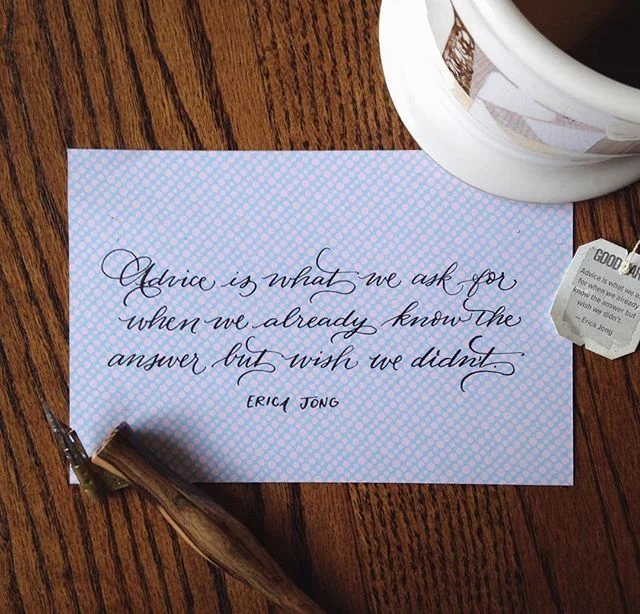 Advice is what we ask for
when we already know the
answer but wish we didnt.
ERICA JONG
GOOD
Advice is what we a
for when we already
know the answer but
wish we didn't.
—Erica Jong